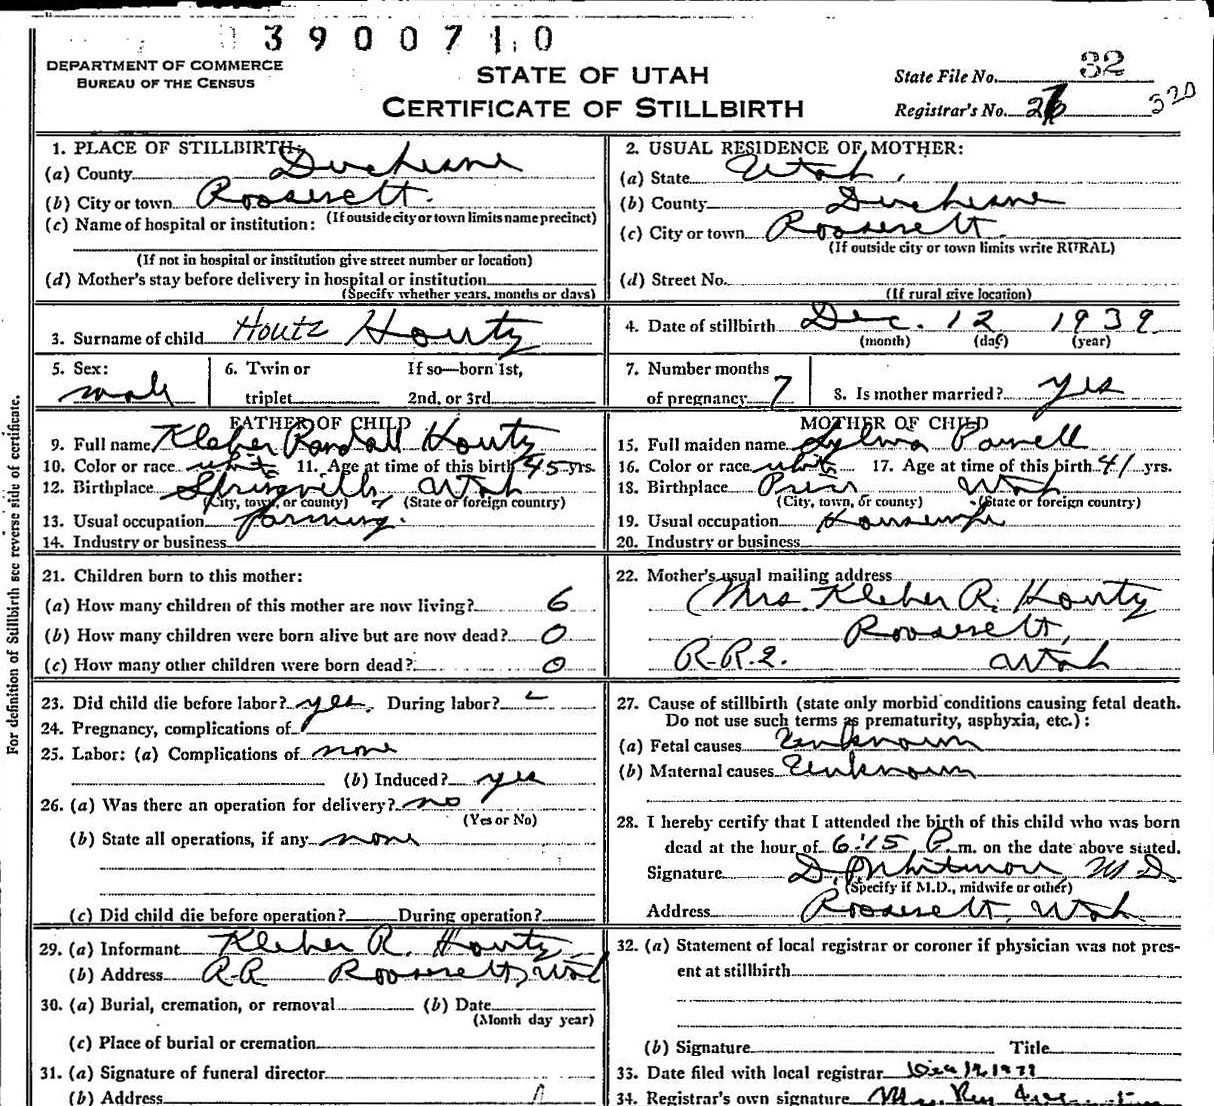 3900710
DEPARTMENT OF COMMERCE
BUREAU OF THE CENSUS
STATE OF UTAH
CERTIFICATE OF STILLBIRTH
State File No. 32
Registrar's No.
320
For definition of Stillbirth see reverse side of certificate.
1. PLACE OF STILLBIRTH:
(a) County Duchesne
(b) City or town Roosevelt.
(If outside city or town limits name precinct)
(c) Name of hospital or institution:
(If not in hospital or institution give street number or location)
(d) Mother's stay before delivery in hospital or institution
(Specify whether years, months or days)
2. USUAL RESIDENCE OF MOTHER:
(a) State Utah
(b) County Duchesne
(c) City or town Roosevelt.
(If outside city or town limits write RURAL)
(d) Street No.
(If rural give location)
3. Surname of child Houtz Houtz
4. Date of stillbirth Dec. 12 1939
(month) (day) (year)
5. Sex:
male
6. Twin or
triplet
If so—born 1st,
2nd, or 3rd
7. Number months
of pregnancy 7
8. Is mother married? yes
FATHER OF CHILD
9. Full name Kleber Randall Houtz
10. Color or race white 11. Age at time of this birth 45 yrs.
12. Birthplace Springville, Utah
(City, town, or county) (State or foreign country)
13. Usual occupation farming.
14. Industry or business
MOTHER OF CHILD
15. Full maiden name Powell
16. Color or race white 17. Age at time of this birth 41 yrs.
18. Birthplace Price Utah
(City, town, or county) (State or foreign country)
19. Usual occupation Housewife
20. Industry or business
21. Children born to this mother:
(a) How many children of this mother are now living? 6
(b) How many children were born alive but are now dead? 0
(c) How many other children were born dead? 0
22. Mother's usual mailing address
Mrs. Kleber R. Houtz
Roosevelt,
R.R.2. Utah
23. Did child die before labor? yes. During labor?
24. Pregnancy, complications of
25. Labor: (a) Complications of none
(b) Induced? yes
26. (a) Was there an operation for delivery? no
(Yes or No)
(b) State all operations, if any none
(c) Did child die before operation? During operation?
27. Cause of stillbirth (state only morbid conditions causing fetal death.
Do not use such terms as prematurity, asphyxia, etc.):
(a) Fetal causes Unknown
(b) Maternal causes Unknown
28. I hereby certify that I attended the birth of this child who was born
dead at the hour of 6:15 P. m. on the date above stated.
Signature Whitmore M.D.
(Specify if M.D., midwife or other)
Address Roosevelt, Utah
29. (a) Informant Kleber R. Houtz
(b) Address R.R Roosevelt, Utah
30. (a) Burial, cremation, or removal (b) Date
(Month day year)
(c) Place of burial or cremation
31. (a) Signature of funeral director
(b) Address
32. (a) Statement of local registrar or coroner if physician was not pres-
ent at stillbirth
(b) Signature Title
33. Date filed with local registrar
34. Registrar's own signature Mrs. Roy